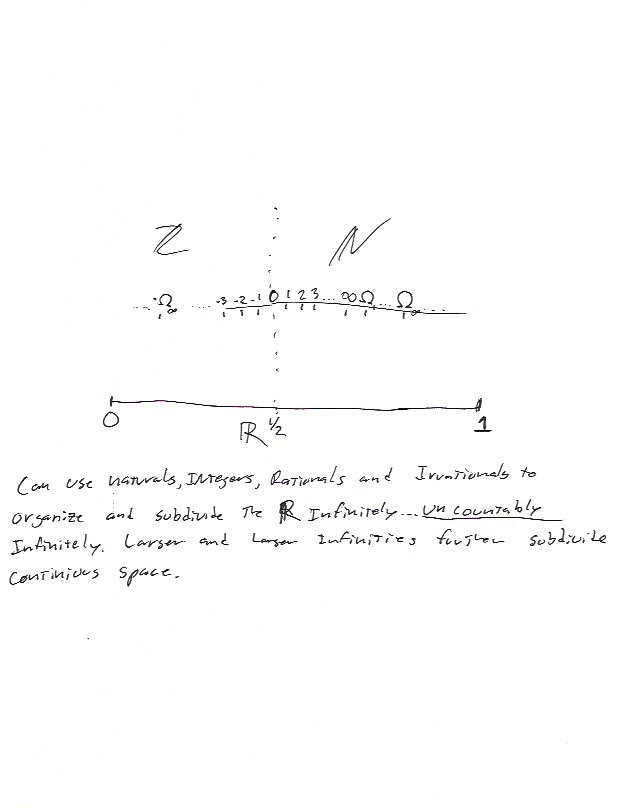 Z N
-Ω∞ ..... -3 -2 -1 0 1 2 3 ... ∞ Ω ... Ω∞ ...
0 ℝ 1/2 1
Can use naturals, Integers, Rationals and Irrationals to
organize and subdivide The ℝ Infinitely... Uncountably
Infinitely. Larger and Larger Infinities further subdivide
continious space.